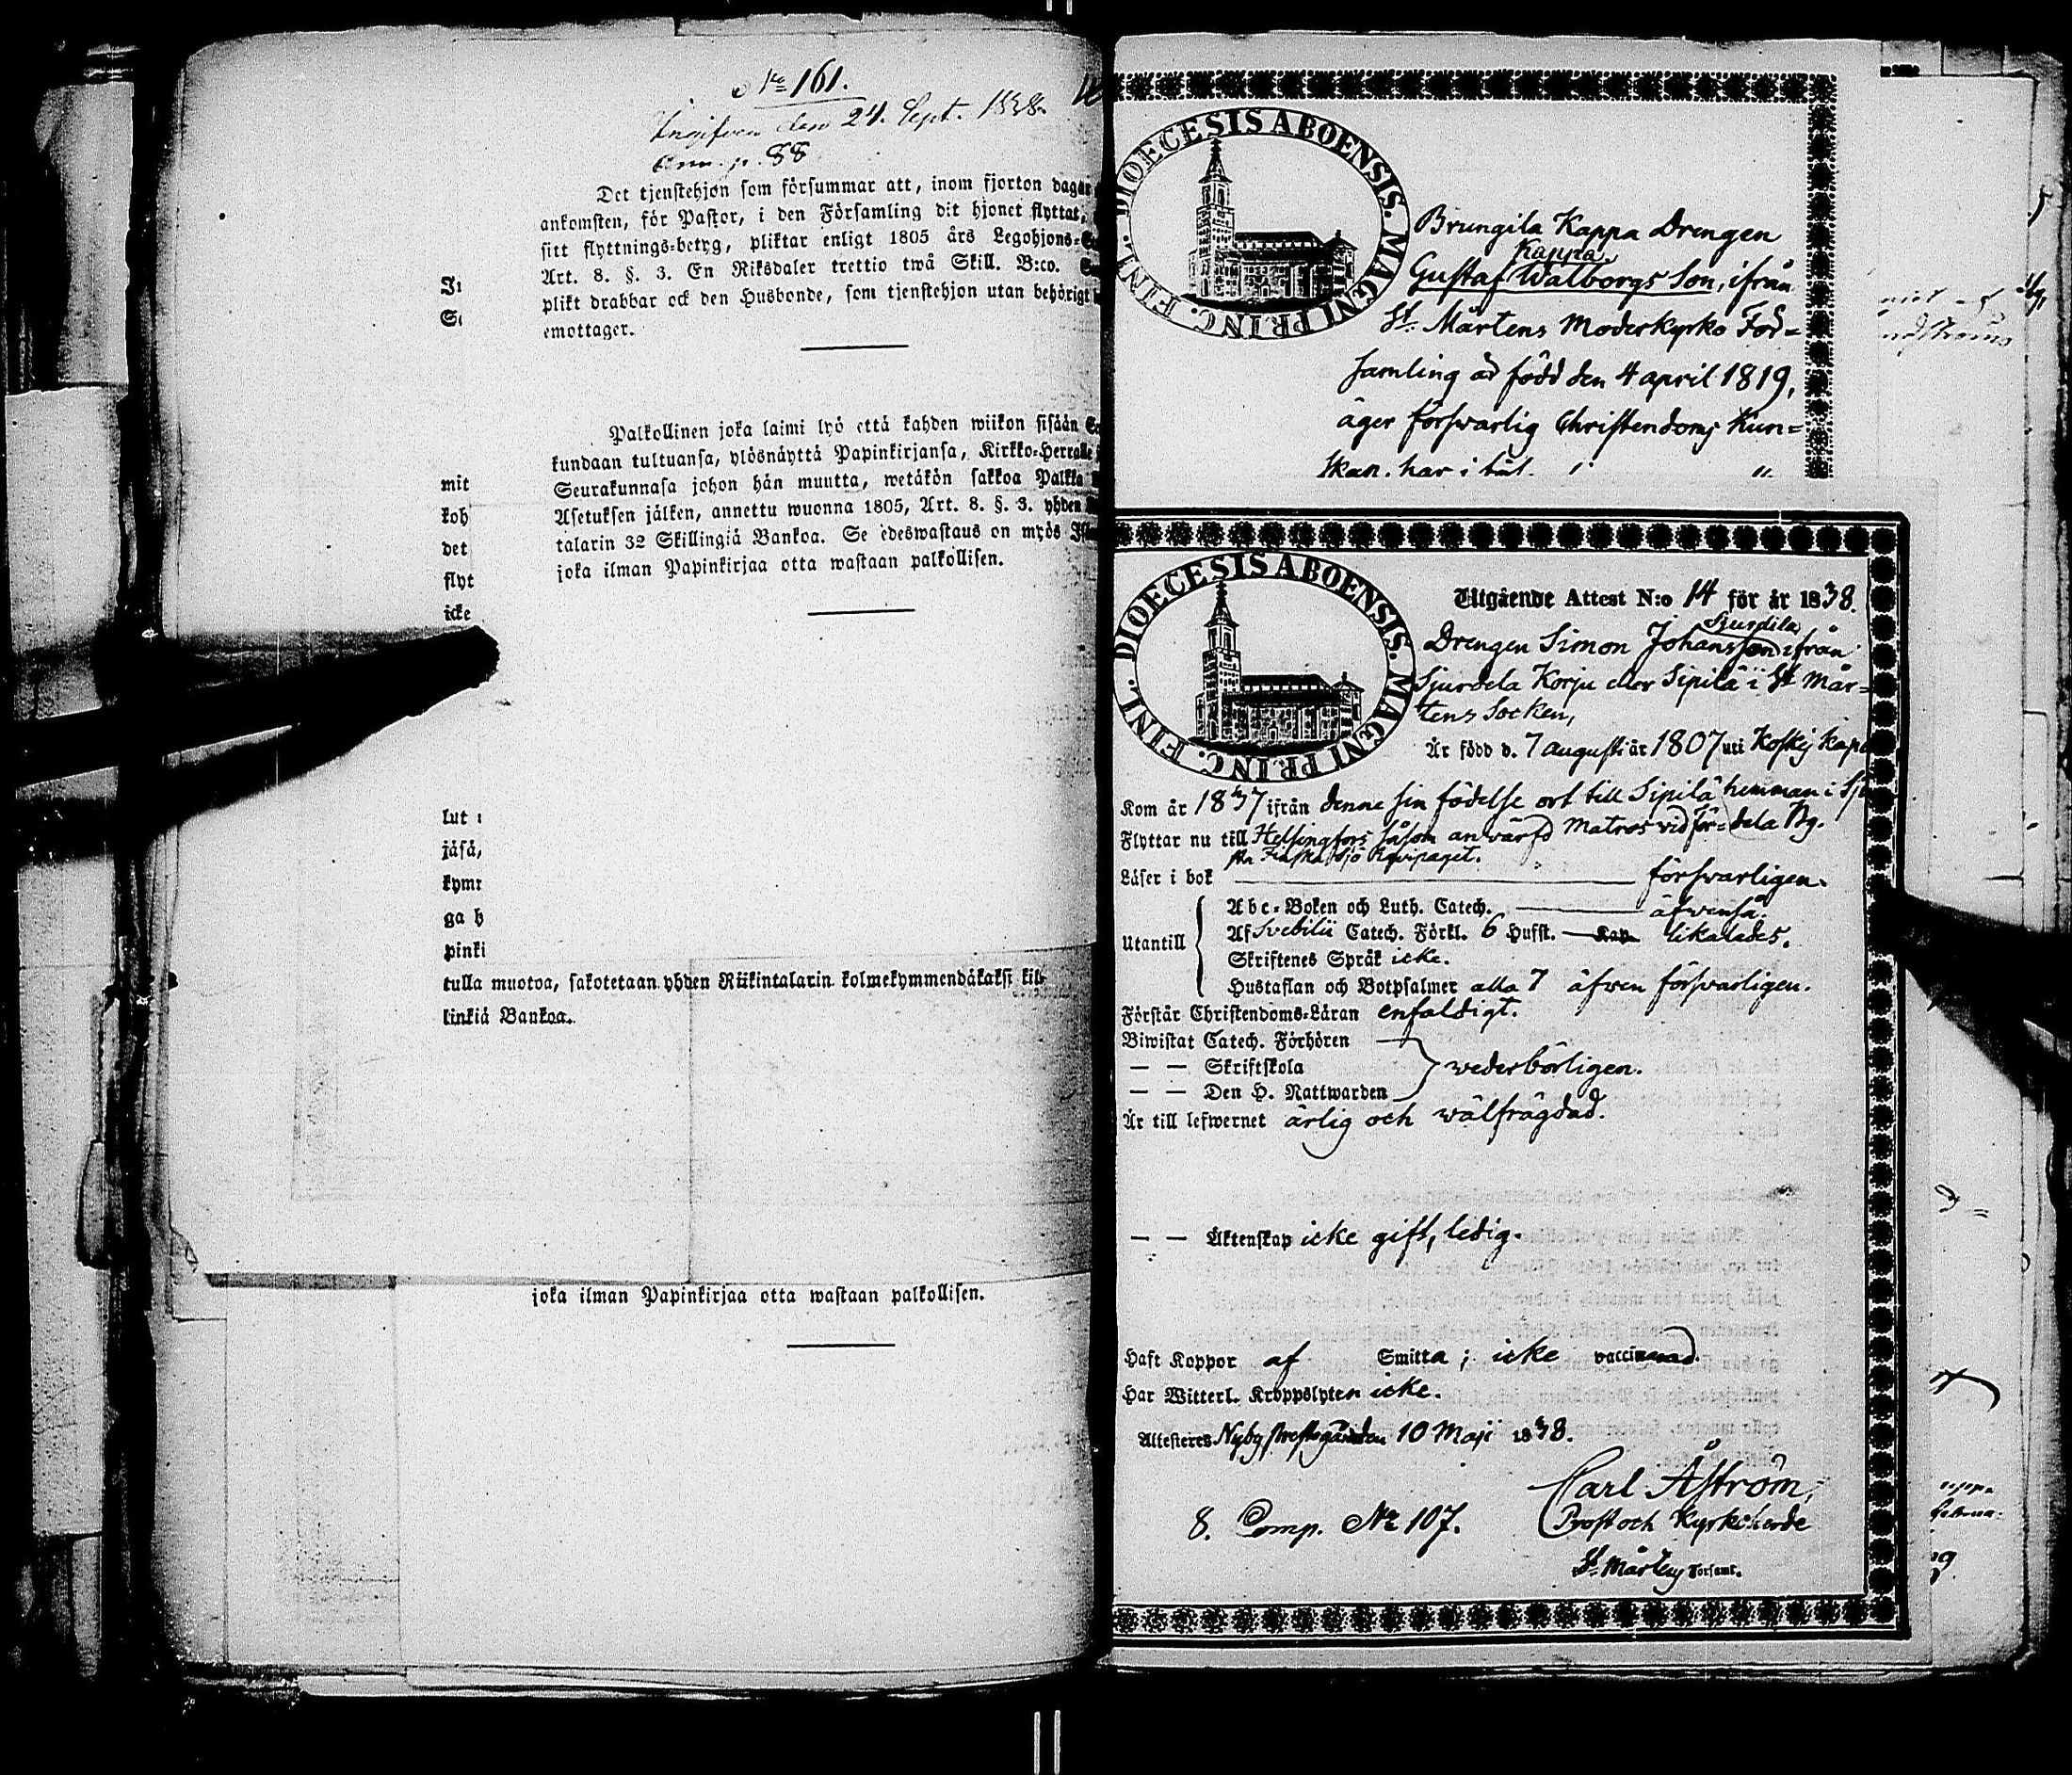 No 161.
Ingifven den 24. Sept. 1838.
Ann. p. 88
Det tjenstehjon som försummar att, inom fjorton dagar
ankomsten, för Pastor, i den Församling dit hjonet flyttat,
sitt flyttnings-betyg, pliktar enligt 1805 års Legohjons-
Art. 8. §. 3. En Riksdaler trettio twå Skill. B:co.
plikt drabbar ock den Husbonde, som tjenstehjon utan behörigt
emottager.
Palkollinen joka laimi lyö että kahden wiikon sisään
kundaan tultuansa, ylösnäyttä Papinkirjansa, Kirkko-Herralle
Seurakunnasa johon hän muutta, wetäkön sakkoa Palkka
Asetuksen jälken, annettu wuonna 1805, Art. 8. §. 3. yhden
talarin 32 Skillingiä Bankoa. Se edeswastaus on myös
joka ilman Papinkirjaa otta wastaan palkollisen.
mit
koh
det
flyt
icke
lut
jäså,
kym
ga h
pinki
tulla muotoa, sakotetaan yhden Riikintalarin kolmekymmendäkaksi kil-
linkiä Bankoa.
joka ilman Papinkirjaa otta wastaan palkollisen.
DIOECESIS ABOENSIS. MAGNI PRINC. FINL.
Brungila Kappa Drengen
Kappa
Gustaf Walborgs Son, ifrån
St. Mårtens Moderkyrko För=
samling är född den 4 april 1819,
äger försvarlig Christendoms Kun=
skap. har i tid
DIOECESIS ABOENSIS. MAGNI PRINC. FINL.
Utgående Attest N:o 14 för år 1838.
Sjurdila
Drengen Simon Johansson ifrån
Sjurdela Korju eller Sipilä i St Mår=
tens Socken,
Är född d. 7 augusti år 1807 uti Koskis Kapell
Kom år 1837 ifrån denne sin födelse ort till Sipilä hemman i Sju
Flyttar nu till Helsingfors såsom anwärfd Matros vid för= dela By.
sta Finska Sjö Equipaget.
Läser i bok försvarligen.
Utantill
Abc-Boken och Luth. Catech. äfvenså.
Af Svebilii Catech. Förkl. 6 Hufst. Kap. likaledes.
Skriftenes Språk icke.
Hustaflan och Botpsalmer alla 7 äfven försvarligen.
Förstår Christendoms-Läran enfaldigt.
Biwistat Catech. Förhören
— — Skriftskola wederbörligen.
— — Den H. Nattwarden
Är till lefwernet ärlig och wälfrägdad.
— — Äktenskap icke gift, ledig.
Haft Koppor af Smitta; icke vaccinerad.
Har Witterl. Kroppslyten icke.
Attesteres Nyby Prestgården 10 Maji 1838.
Carl Åström,
8. Comp. No 107. Prost och Kyrkoherde
St. Mårtens Församl.